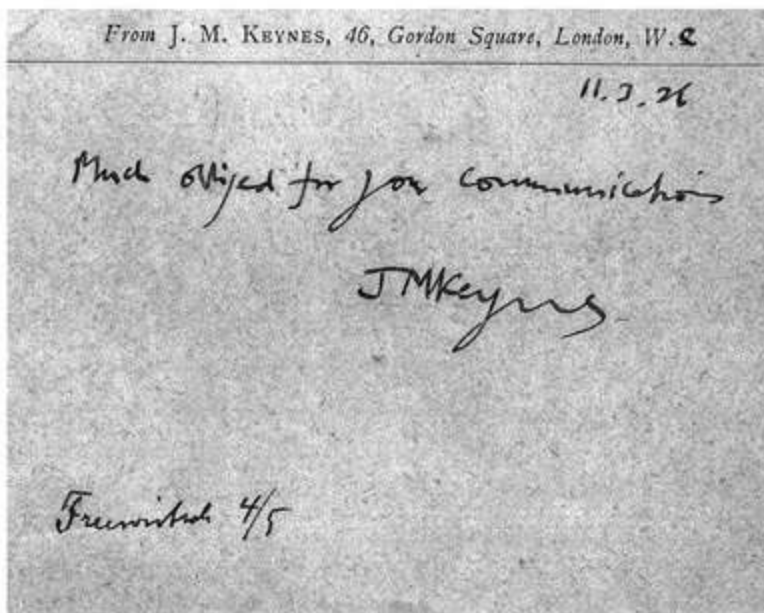 From J. M. KEYNES, 46, Gordon Square, London, W.C
11.3.26
Much obliged for your communications
JMKeynes
4/5